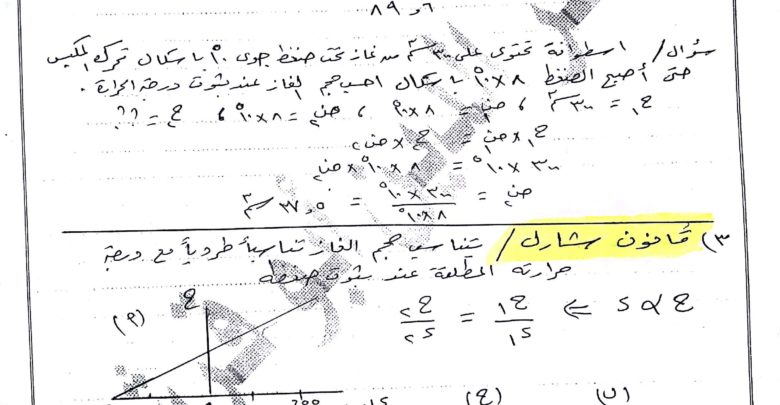 ٨٩ و٦
سؤال / اسطوانة تحتوى على ٣٠٠ سم٣ من غاز تحت ضغط جوى ١٠^٥ باسكال تحرك المكبس
حتى أصبح الضغط ٨×١٠^٥ باسكال احسب حجم الغاز عند ثبوت درجة الحرارة .
ح١ = ٣٠٠ سم٣ ، ض١ = ٨×١٠^٥ ، ض٢ = ٨×١٠^٥ ، ح٢ = ؟؟
ح١ × ض١ = ح٢ × ض٢
٣٠٠ × ١٠^٥ = ٨ × ١٠^٥ × ض٢
ض٢ = ٣٠٠ × ١٠^٥ / ٨×١٠^٥ = ٣٧٫٥ سم٣
٣) قانون شارل / تناسب حجم الغاز تناسباً طردياً مع درجة
حرارته المطلقة عند ثبوت ضغطه
ح α د ⇐ ح١ / د١ = ح٢ / د٢
ح
(٩)
(ب) (ج)